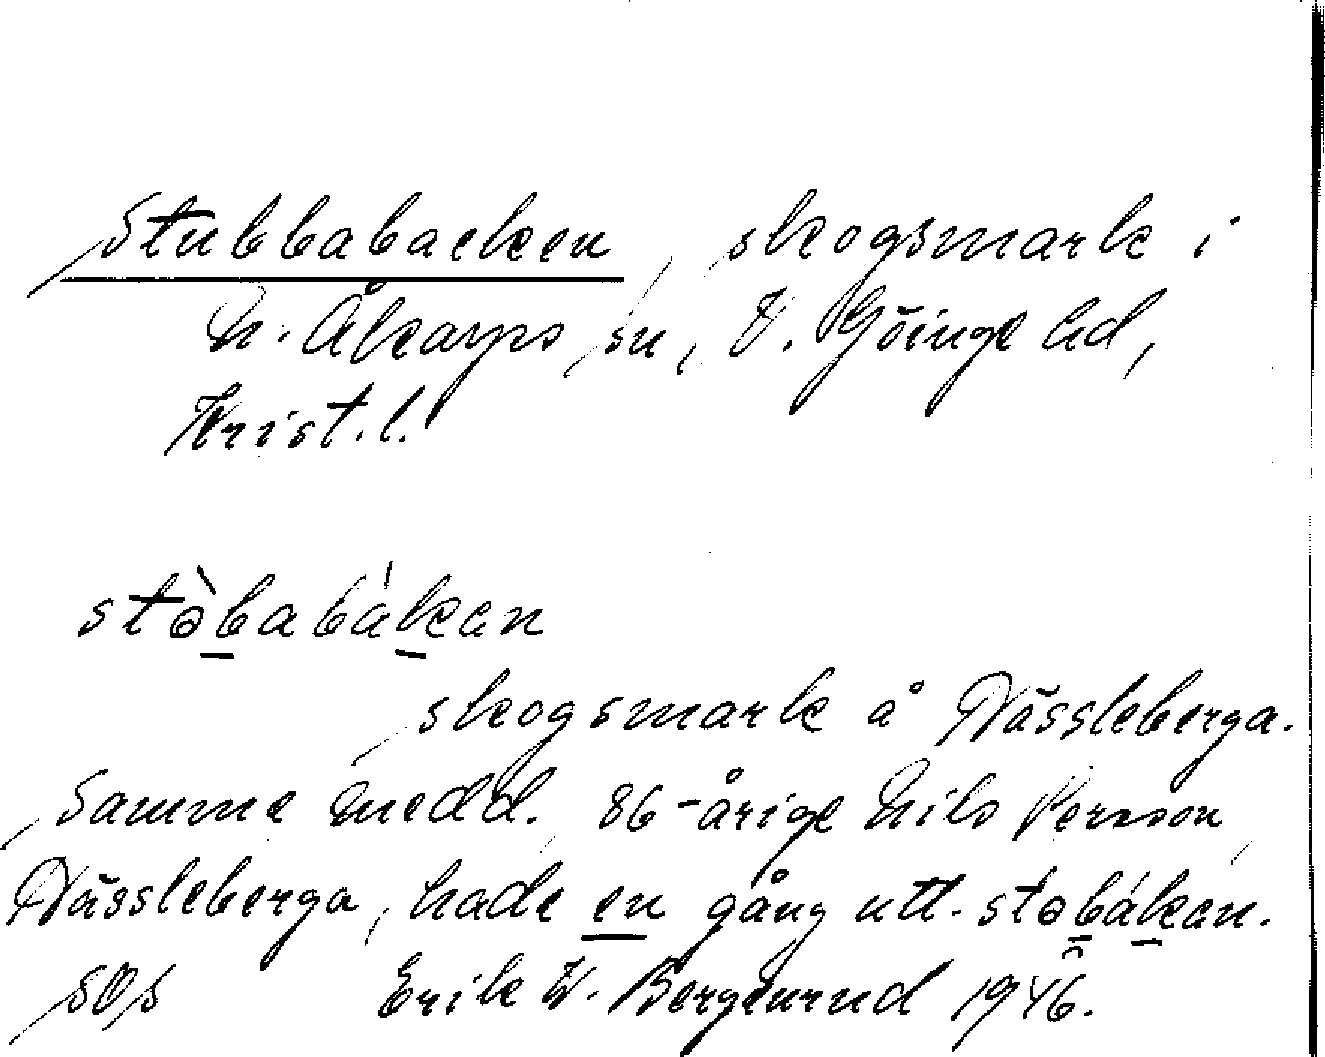 Stubbabacken, skogsmark i
N. Åkarps sn, V. Göinge hd,
Krist. l.
stə̀babákan
skogsmark å Nässleberga.
Samme medd. 86-årige Nils Persson,
Nässleberga, hade en gång utt. stəbákan.
SOS Erik W. Bergenrud 1946.